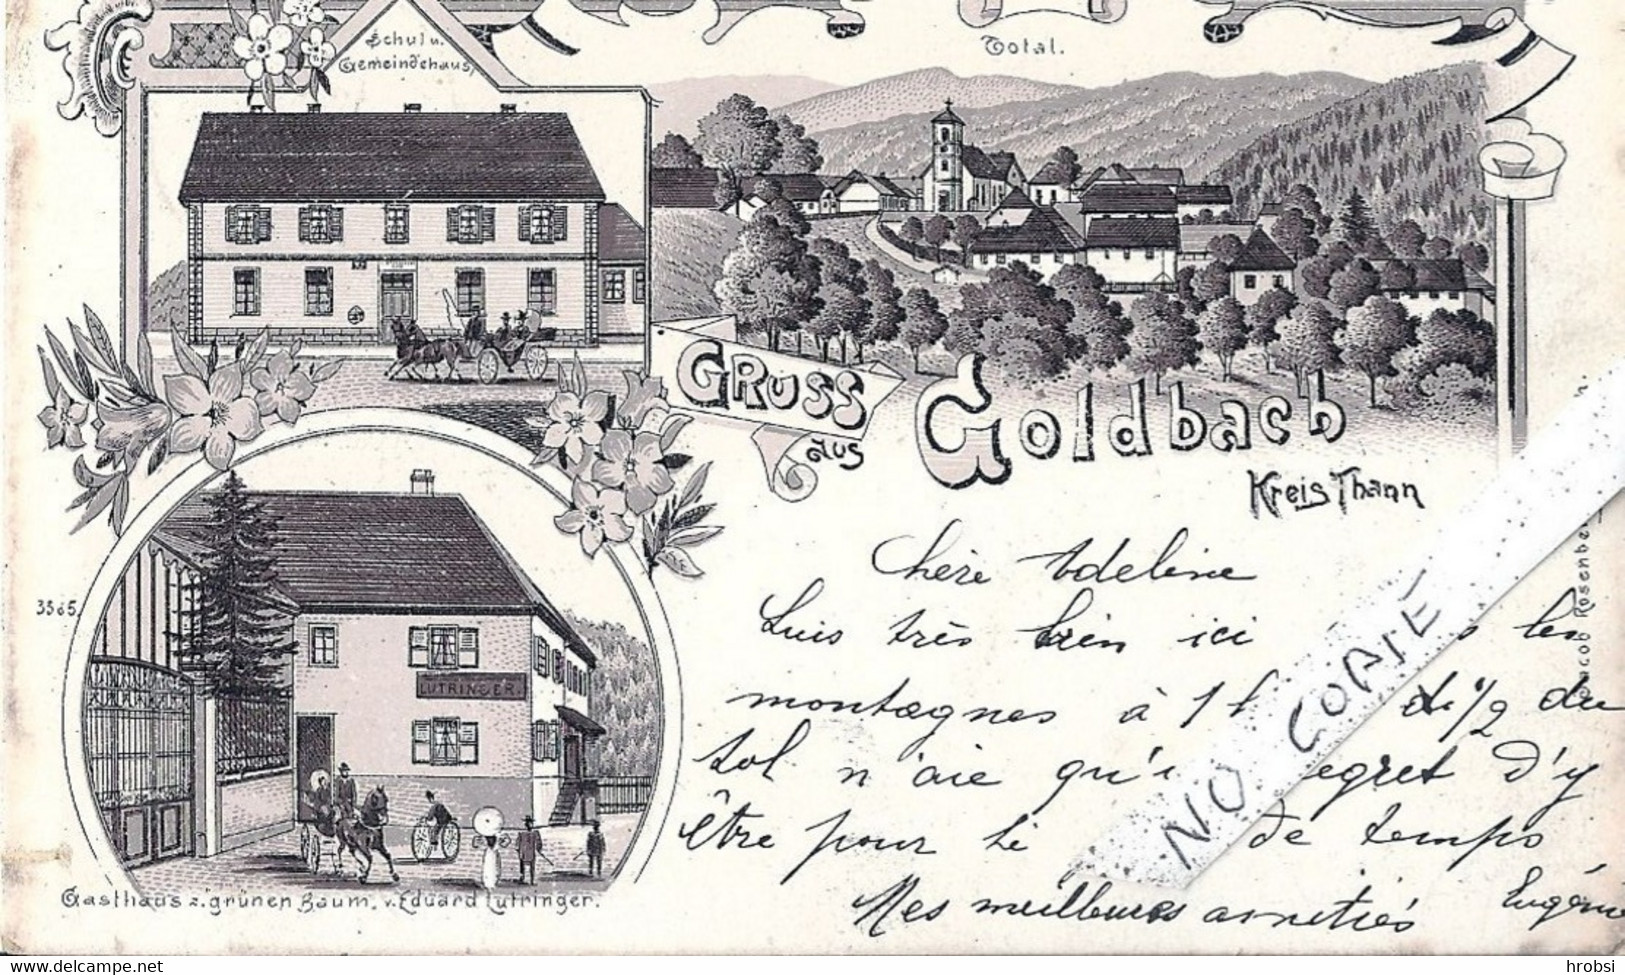 Schul u.
Gemeindehaus
Total.
GRUSS
aus
Goldbach
Kreis Thann
Chère Adeline
Suis très bien ici les
montagnes à 1 1/2 du
sol n'aie qu'
regret d'y
être pour si de temps
Mes meilleures amitiés
Eugénie
NO COPIE
3565.
LUTRINGER.
Gasthaus z. grünen Baum, v. Eduard Lutringer.
delcampe.net
hrobsi